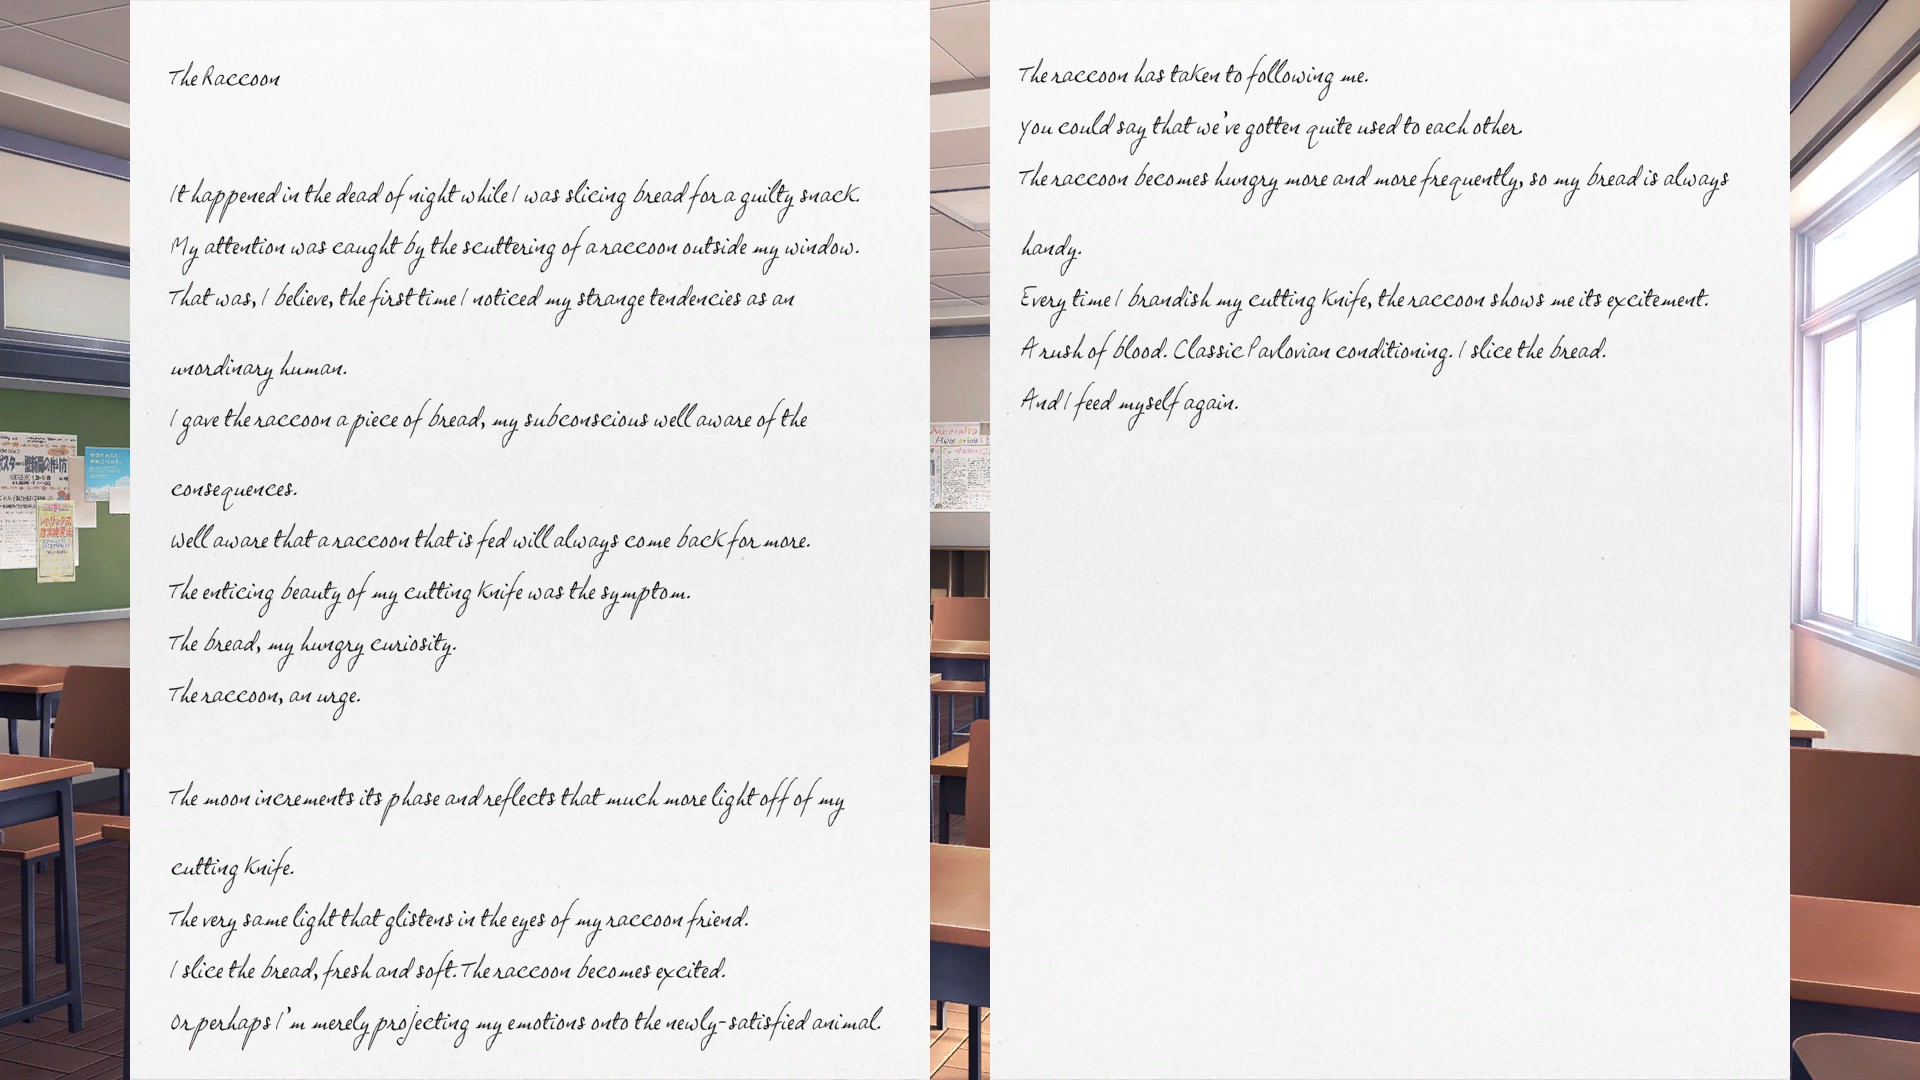 The Raccoon
It happened in the dead of night while I was slicing bread for a guilty snack.
My attention was caught by the scuttering of a raccoon outside my window.
That was, I believe, the first time I noticed my strange tendencies as an
unordinary human.
I gave the raccoon a piece of bread, my subconscious well aware of the
consequences.
Well aware that a raccoon that is fed will always come back for more.
The enticing beauty of my cutting knife was the symptom.
The bread, my hungry curiosity.
The raccoon, an urge.
The moon increments its phase and reflects that much more light off of my
cutting knife.
The very same light that glistens in the eyes of my raccoon friend.
I slice the bread, fresh and soft. The raccoon becomes excited.
Or perhaps I'm merely projecting my emotions onto the newly-satisfied animal.
The raccoon has taken to following me.
You could say that we've gotten quite used to each other.
The raccoon becomes hungry more and more frequently, so my bread is always
handy.
Every time I brandish my cutting knife, the raccoon shows me its excitement.
A rush of blood. Classic Pavlovian conditioning. I slice the bread.
And I feed myself again.
Australia